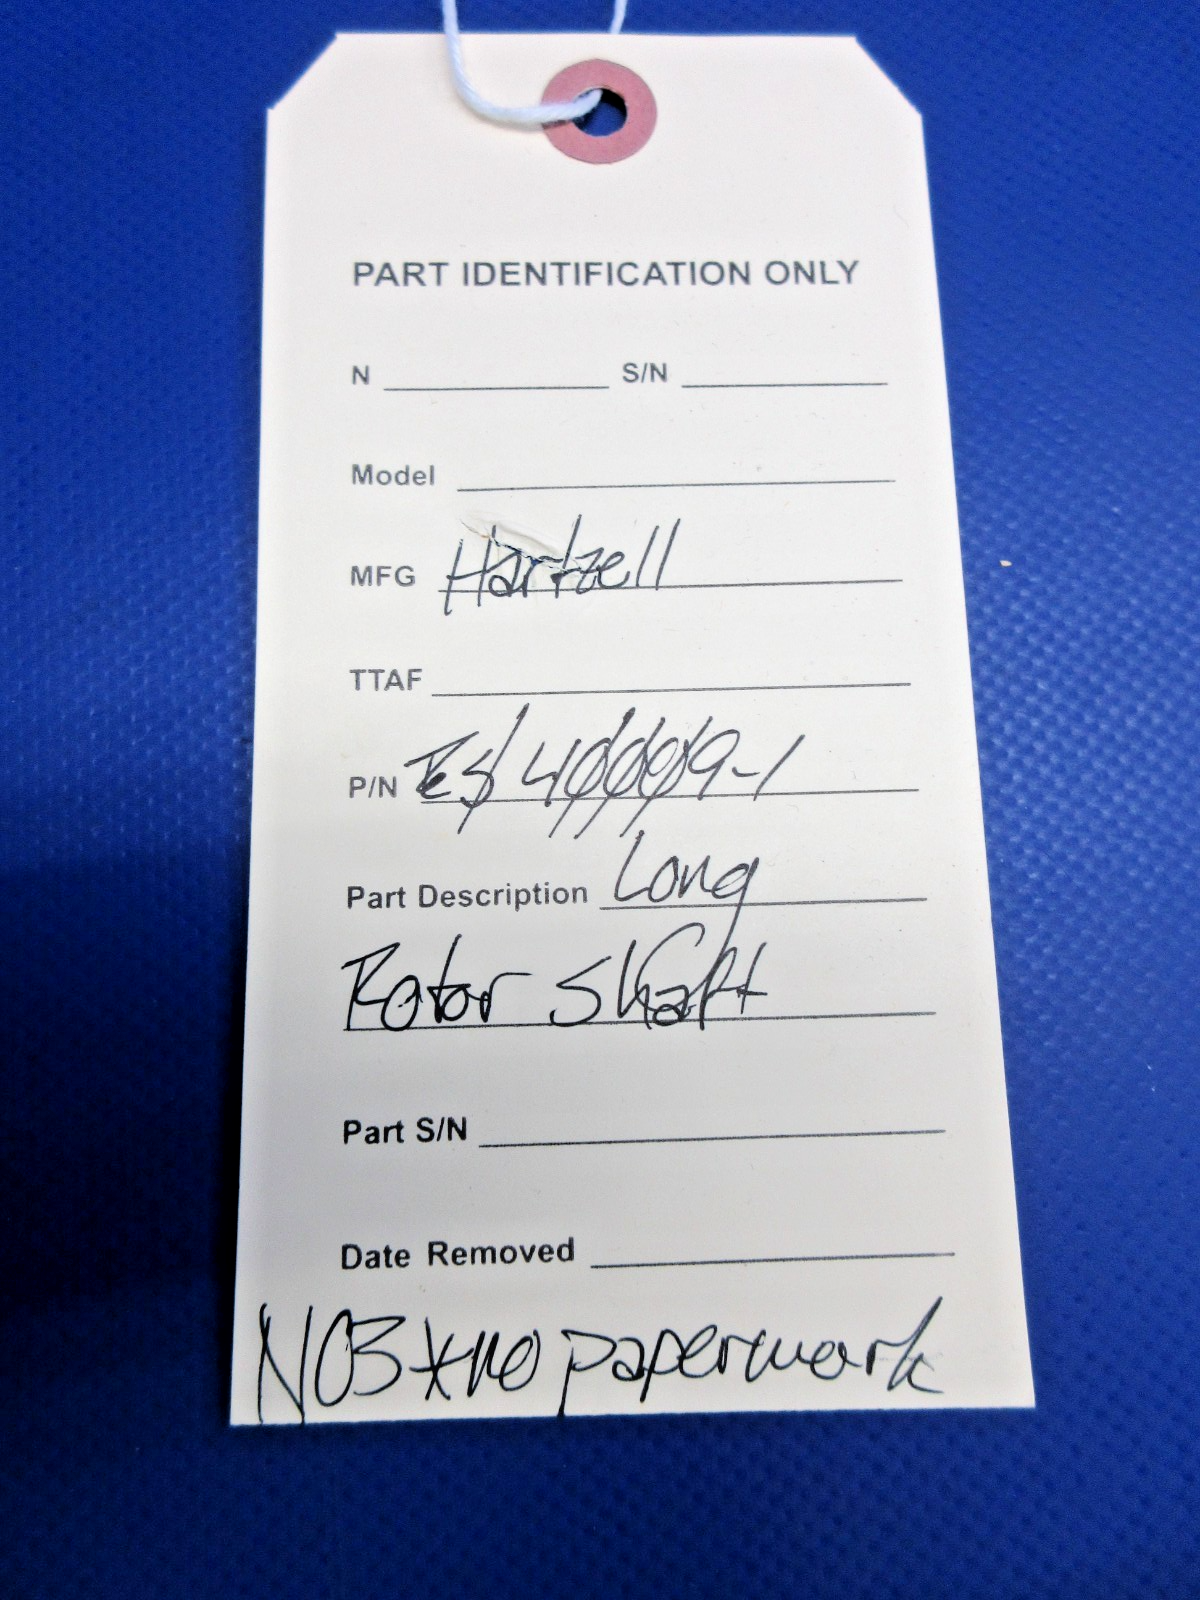 PART IDENTIFICATION ONLY
N S/N
Model
MFG Hartzell
TTAF
P/N ES40009-1
Part Description Long
Rotor Shaft
Part S/N
Date Removed
NOS *no paperwork